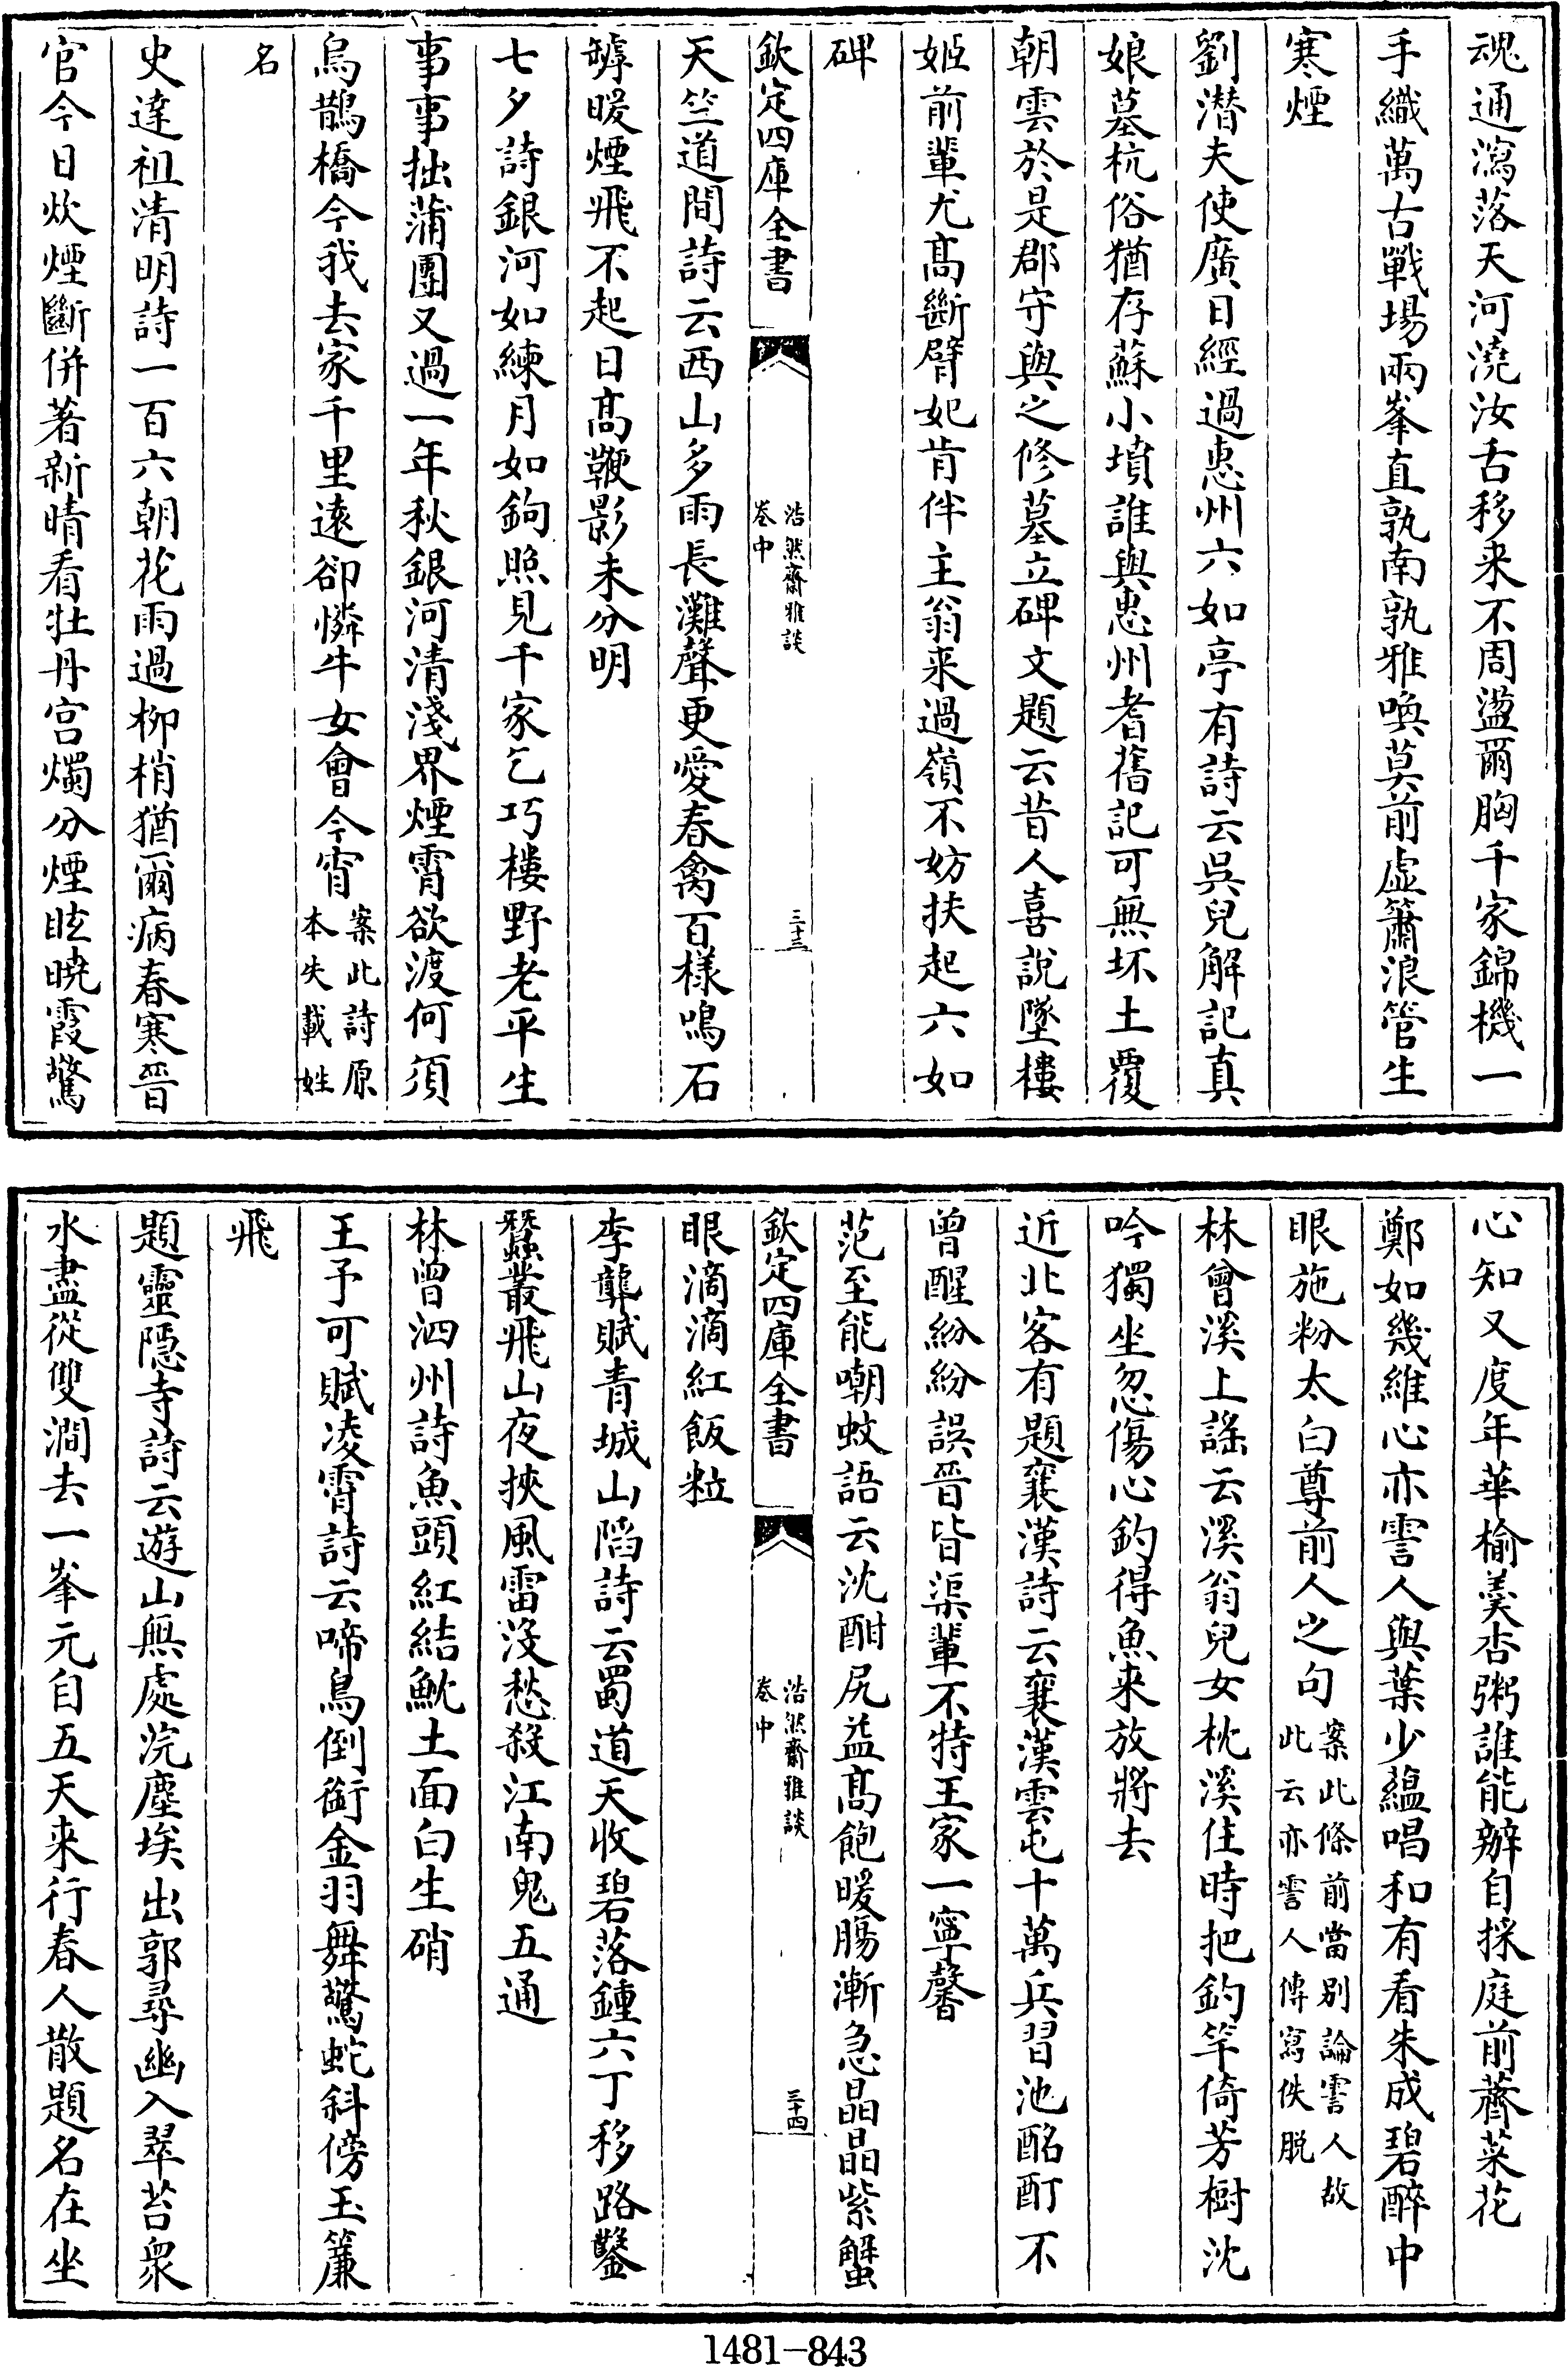 魂通瀉落天河澆汝舌移来不周盪爾胸千家錦機一
手織萬古戰場兩峯直孰南孰雅喚莫前虚簫浪管生
寒煙
劉潜夫使廣日經過惠州六如亭有詩云吳兒解記真
娘墓杭俗猶存蘇小墳誰與惠州耆舊記可無坏土覆
朝雲於是郡守與之修墓立碑文題云昔人喜說墜樓
姬前輩尤高斷臂妃肯伴主翁来過嶺不妨扶起六如
碑
欽定四庫全書
浩然齋雅談
卷中
三十三
天竺道間詩云西山多雨長灘聲更愛春禽百様鳴石
罅暖煙飛不起日高鞭影未分明
七夕詩銀河如練月如鉤照見千家乞巧樓野老平生
事事拙蒲團又過一年秋銀河清淺界煙霄欲渡何須
烏鵲橋今我去家千里遠卻憐牛女會今宵案此詩原
本失載姓
名
史達祖清明詩一百六朝花雨過柳梢猶爾病春寒晉
官今日炊煙斷併著新晴看牡丹宫燭分煙眩曉霞驚
心知又度年華榆羮杏粥誰能辦自採庭前薺菜花
鄭如幾維心亦霅人與葉少藴唱和有看朱成碧醉中
眼施粉太白尊前人之句案此條前當别論霅人故
此云亦霅人傳寫佚脱
林曾溪上謡云溪翁兒女枕溪住時把釣竿倚芳樹沈
吟獨坐忽傷心釣得魚来放將去
近北客有題襄漢詩云襄漢雲屯十萬兵習池酩酊不
曾醒紛紛誤晉皆渠輩不特王家一寧馨
范至能嘲蚊語云沈酣尻益高飽暖腸漸急晶晶紫蟹
欽定四庫全書
浩然齋雅談
卷中
三十四
眼滴滴紅飯粒
李龏賦青城山蹈詩云蜀道天收碧落鍾六丁移路鑿
蠶叢飛山夜挾風雷沒愁殺江南鬼五通
林曾泗州詩魚頭紅結魫土面白生硝
王予可賦凌霄詩云啼鳥倒銜金羽舞驚蛇斜傍玉簾
飛
題靈隠寺詩云遊山無處浣塵埃出郭尋幽入翠苔衆
水盡從雙澗去一峯元自五天来行春人散題名在坐
1481-843